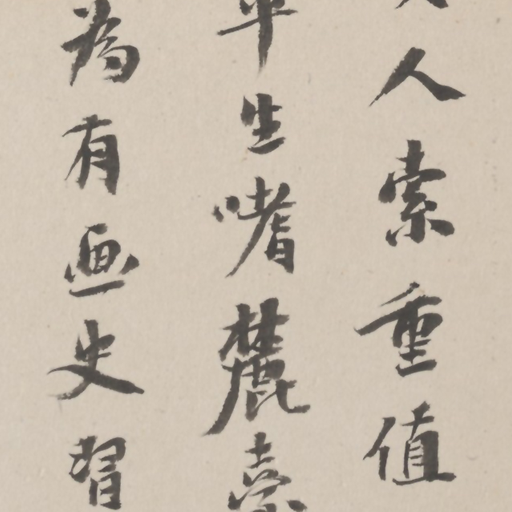 人索重值
平生嗜麓臺
為有画史習